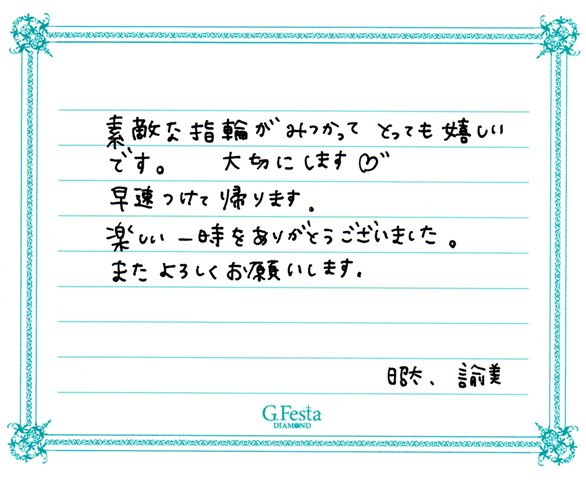 素敵な指輪がみつかって とっても嬉しい
です。 大切にします♡"
早速つけて帰ります.
楽しい一時をありがとうございました。
またよろしくお願いします.
昭太、諭美
G.Festa
DIAMOND